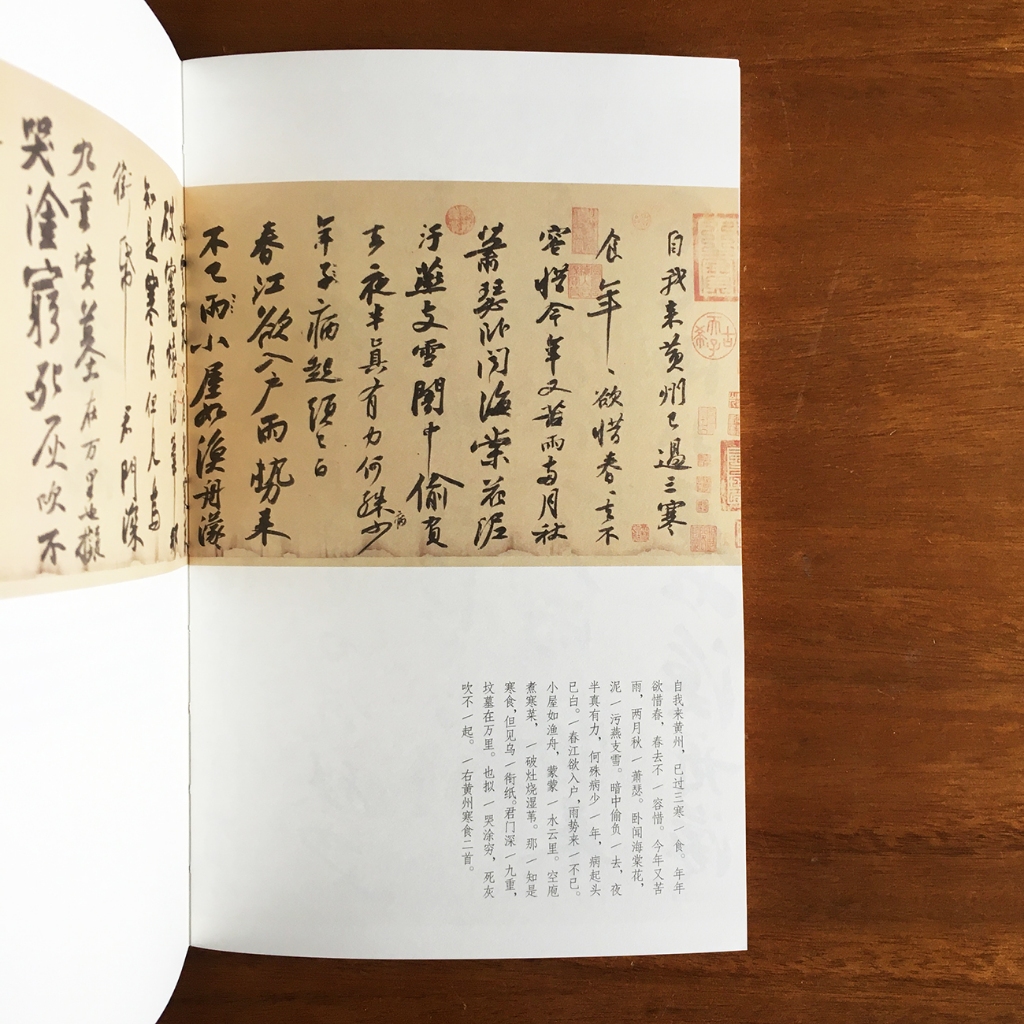 自我来黄州已過三寒
食年〻欲惜春〻去不
容惜今年又苦雨兩月秋
蕭瑟卧聞海棠花泥
汙燕支雪闇中偷負
去夜半真有力何殊病少
年子病起頭已白
春江欲入户雨勢来
不已雨小屋如漁舟濛
破竈燒濕葦那
知是寒食但見烏
銜帋君門深
九重墳墓在万里也擬
哭塗窮死灰吹不
自我来黄州，已过三寒一食。年年
欲惜春，春去不一容惜。今年又苦
雨，两月秋一萧瑟。卧闻海棠花，
泥一污燕支雪。暗中偷负一去，夜
半真有力，何殊病少一年，病起头
已白。一春江欲入户，雨势来一不已。
小屋如渔舟，蒙蒙一水云里。空庖
煮寒菜，一破灶烧湿苇。那一知是
寒食，但见乌一衔纸。君门深一九重，
坟墓在万里。也拟一哭涂穷，死灰
吹不一起。一右黄州寒食二首。